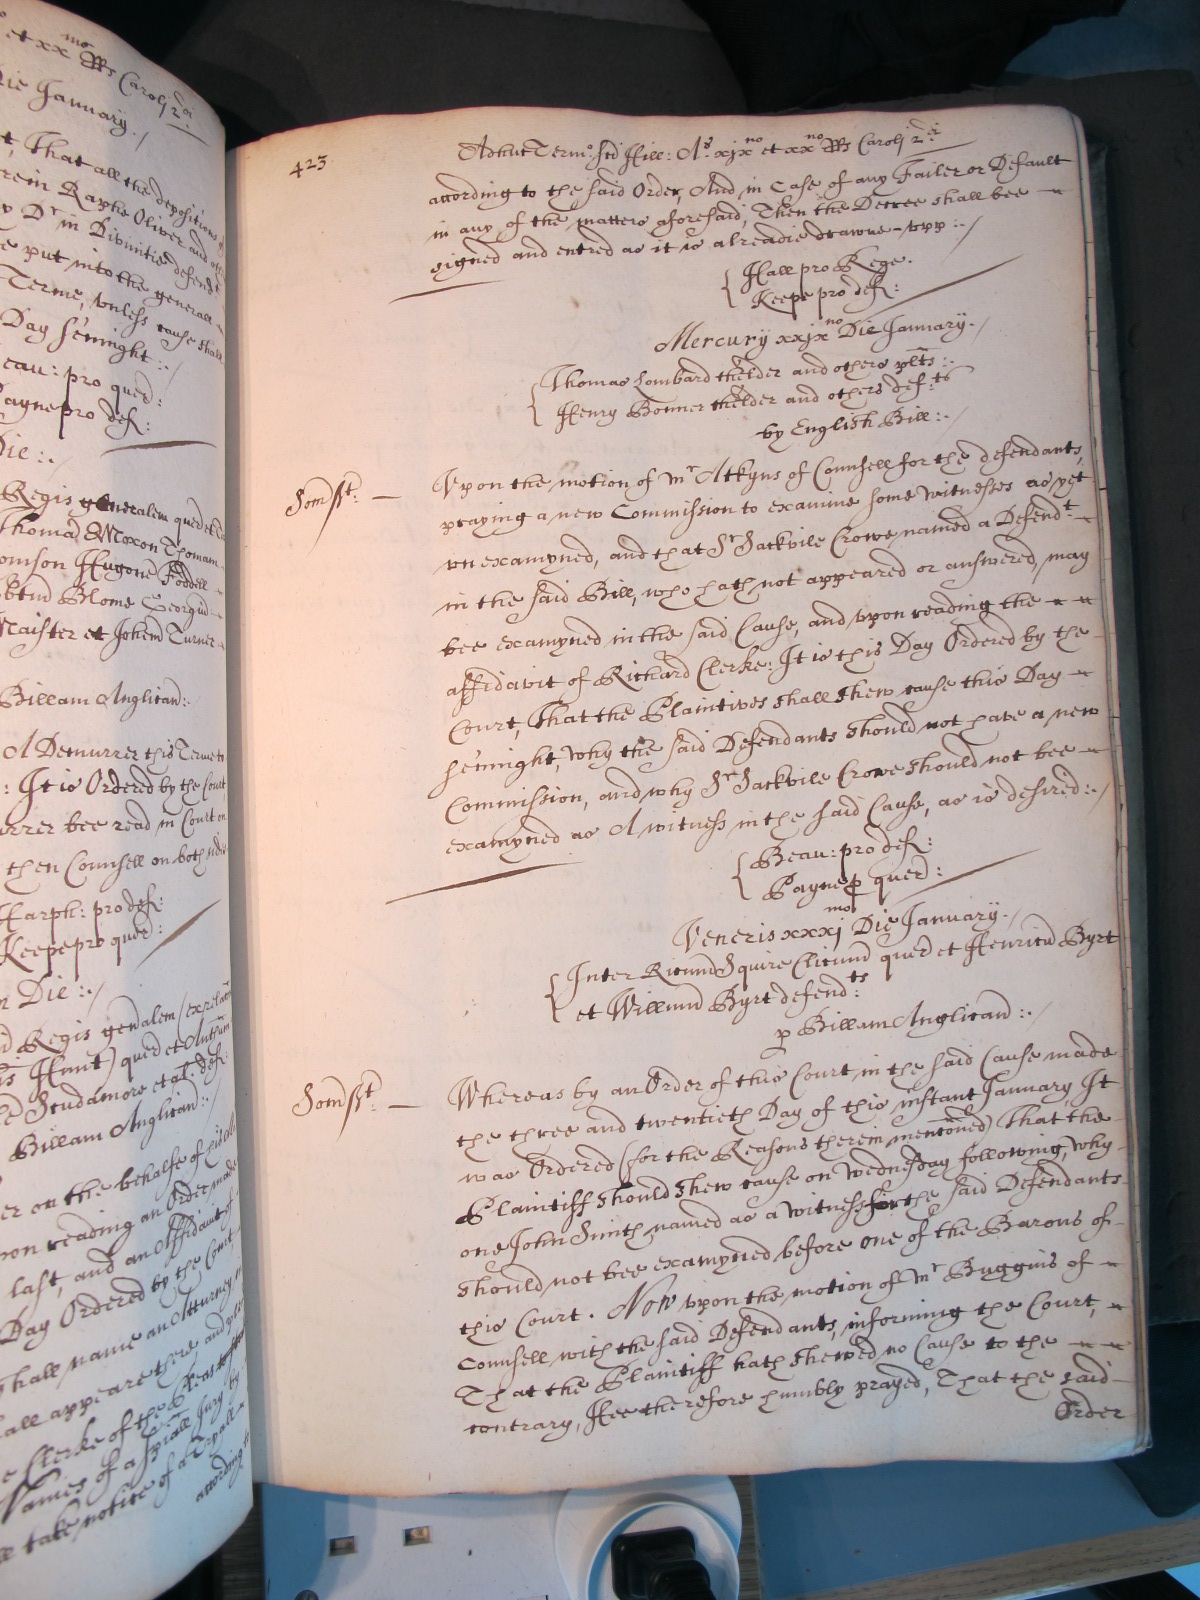 et xx mo RRs Caroli 2di
Die January./
t, That all the depositions
rein Raphe Oliver and
Dr in Divinitie defendt
e put into the generall
Terme, unless cause shall
Day se'night ::/
eau: pro quer:
Payne pro def:
Die ::/
Regis generalem quer et
Thoma Moxon Thomam
omson Hugone Foddell
Blome Georgiu
Maister et Johem Turner
Billam Anglican:
A Demurrer this Terme
: It is Ordered by the Court
urrer bee read in Court on
then Counsell on both sides
Harph: pro def:
Keepe pro quer:
Die ::/
Regis genalem (ex
Hunt) quer et
Scudamore et al: def:
Billam Anglican:
er on the behalfe of
on reading an Order made
last, and an Affidavit of
Day Ordered by the Court
shall name an Atturney
all appeare there and
e Clerke of the Pleas
Names of a spiall Jury by
take notice of a Tryall
according
423
Adhuc Termo Sci Hill: Ao xixno et xxno RRs Caroli 2di
according to the said Order, And in Case of any Failer or Default
in any of the matters aforesaid, Then the Decree shall bee
signed and entred as it is alreadie drawne upp ::/
Hall pro Rege.
Keepe pro def:
Mercury xxixno Die January./
Thomas Lombard thelder and others plts::
Henry Bonner thelder and others defts
by English Bill::/
Somsst:
Upon the motion of Mr Atkyns of Counsell for the defendants,
praying a new Commission to examine some witnesses as yet
unexamyned, and that Sr Sackvile Crowe named a Defendt
in the said Bill, who hath not appeared or answered, may
bee examyned in the said Cause, and upon reading the
affidavit of Richard Clerke: It is this Day Ordered by the
Court, That the Plaintives shall shew cause this Day
se'night, why the said Defendants should not have a new
Commission, and why Sr Sackvile Crowe should not bee
examyned as A witness in the said Cause, as is desired::/
Beau: pro def:
Payne p quer:
Veneris xxximo Die January./
Inter Ricum Squire Clicum quer et Henricu Byrt
et Willum Byrt defendts
p Billam Anglican::/
Somsst:
Whereas by an Order of this Court in the said Cause made
the three and twentieth Day of this instant January, It
was Ordered (for the Reasons therein mentoned) That the
Plaintiff should shew cause on Wednesday following, why
one John Smith named as a witness for the said Defendants
should not bee examyned before one of the Barons of
this Court. Now upon the motion of Mr Buggins of
Counsell with the said Defendants, informing the Court,
That the Plaintiff hath shewed no Cause to the
contrary, Hee therefore humbly prayed, That the said
Order